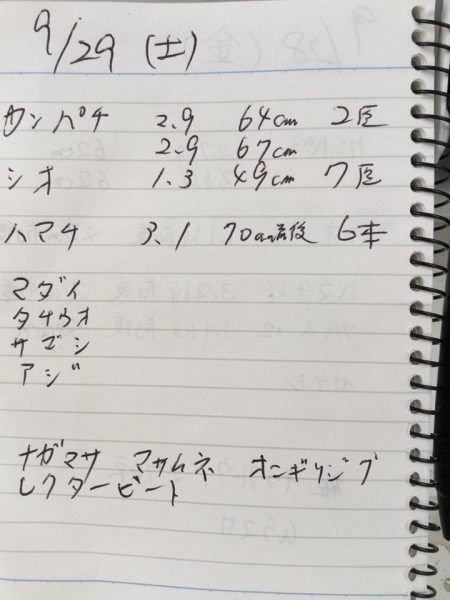 9/29 (土)
カンパチ 2.9 64cm 2匹
2.9 67cm
シオ 1.3 49cm 7匹
ハマチ 3.1 70cm前後 6本
マダイ
タチウオ
サゴシ
アジ
ナガマサ マサムネ オニギリジグ
レクタービート